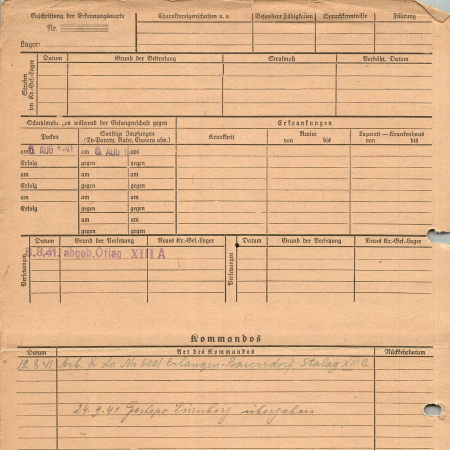 Beschriftung der Erkennungsmarke
Nr.
Lager:
Charaktereigenschaften u. a.
Besondere Fähigkeiten
Sprachkenntnisse
Führung
Strafen im Kr.-Gef.-Lager
Datum
Grund der Bestrafung
Strafmaß
Verbüßt, Datum
Schutzimpfungen während der Gefangenschaft gegen
Erkrankungen
Pocken
Sonstige Impfungen
(Ty-Paraty, Ruhr, Cholera usw.)
Krankheit
Revier
von bis
Lazarett – Krankenhaus
von bis
am 8 AUG 1941 am 8 AUG 1 am
Erfolg gegen gegen
am am am
Erfolg gegen gegen
am am am
Erfolg gegen gegen
am am
gegen gegen
Versetzungen
Datum
Grund der Versetzung
Neues Kr.-Gef.-Lager
Versetzungen
Datum
Grund der Versetzung
Neues Kr.-Gef.-Lager
8.8.41. abgeb. Oflag XIII A
Kommandos
Datum
Art des Kommandos
Rückkehrdatum
Arb. Kdo Nr 6001 Erlangen- Stalag XIII C
24.9.41 Gestapo Nürnberg übergeben